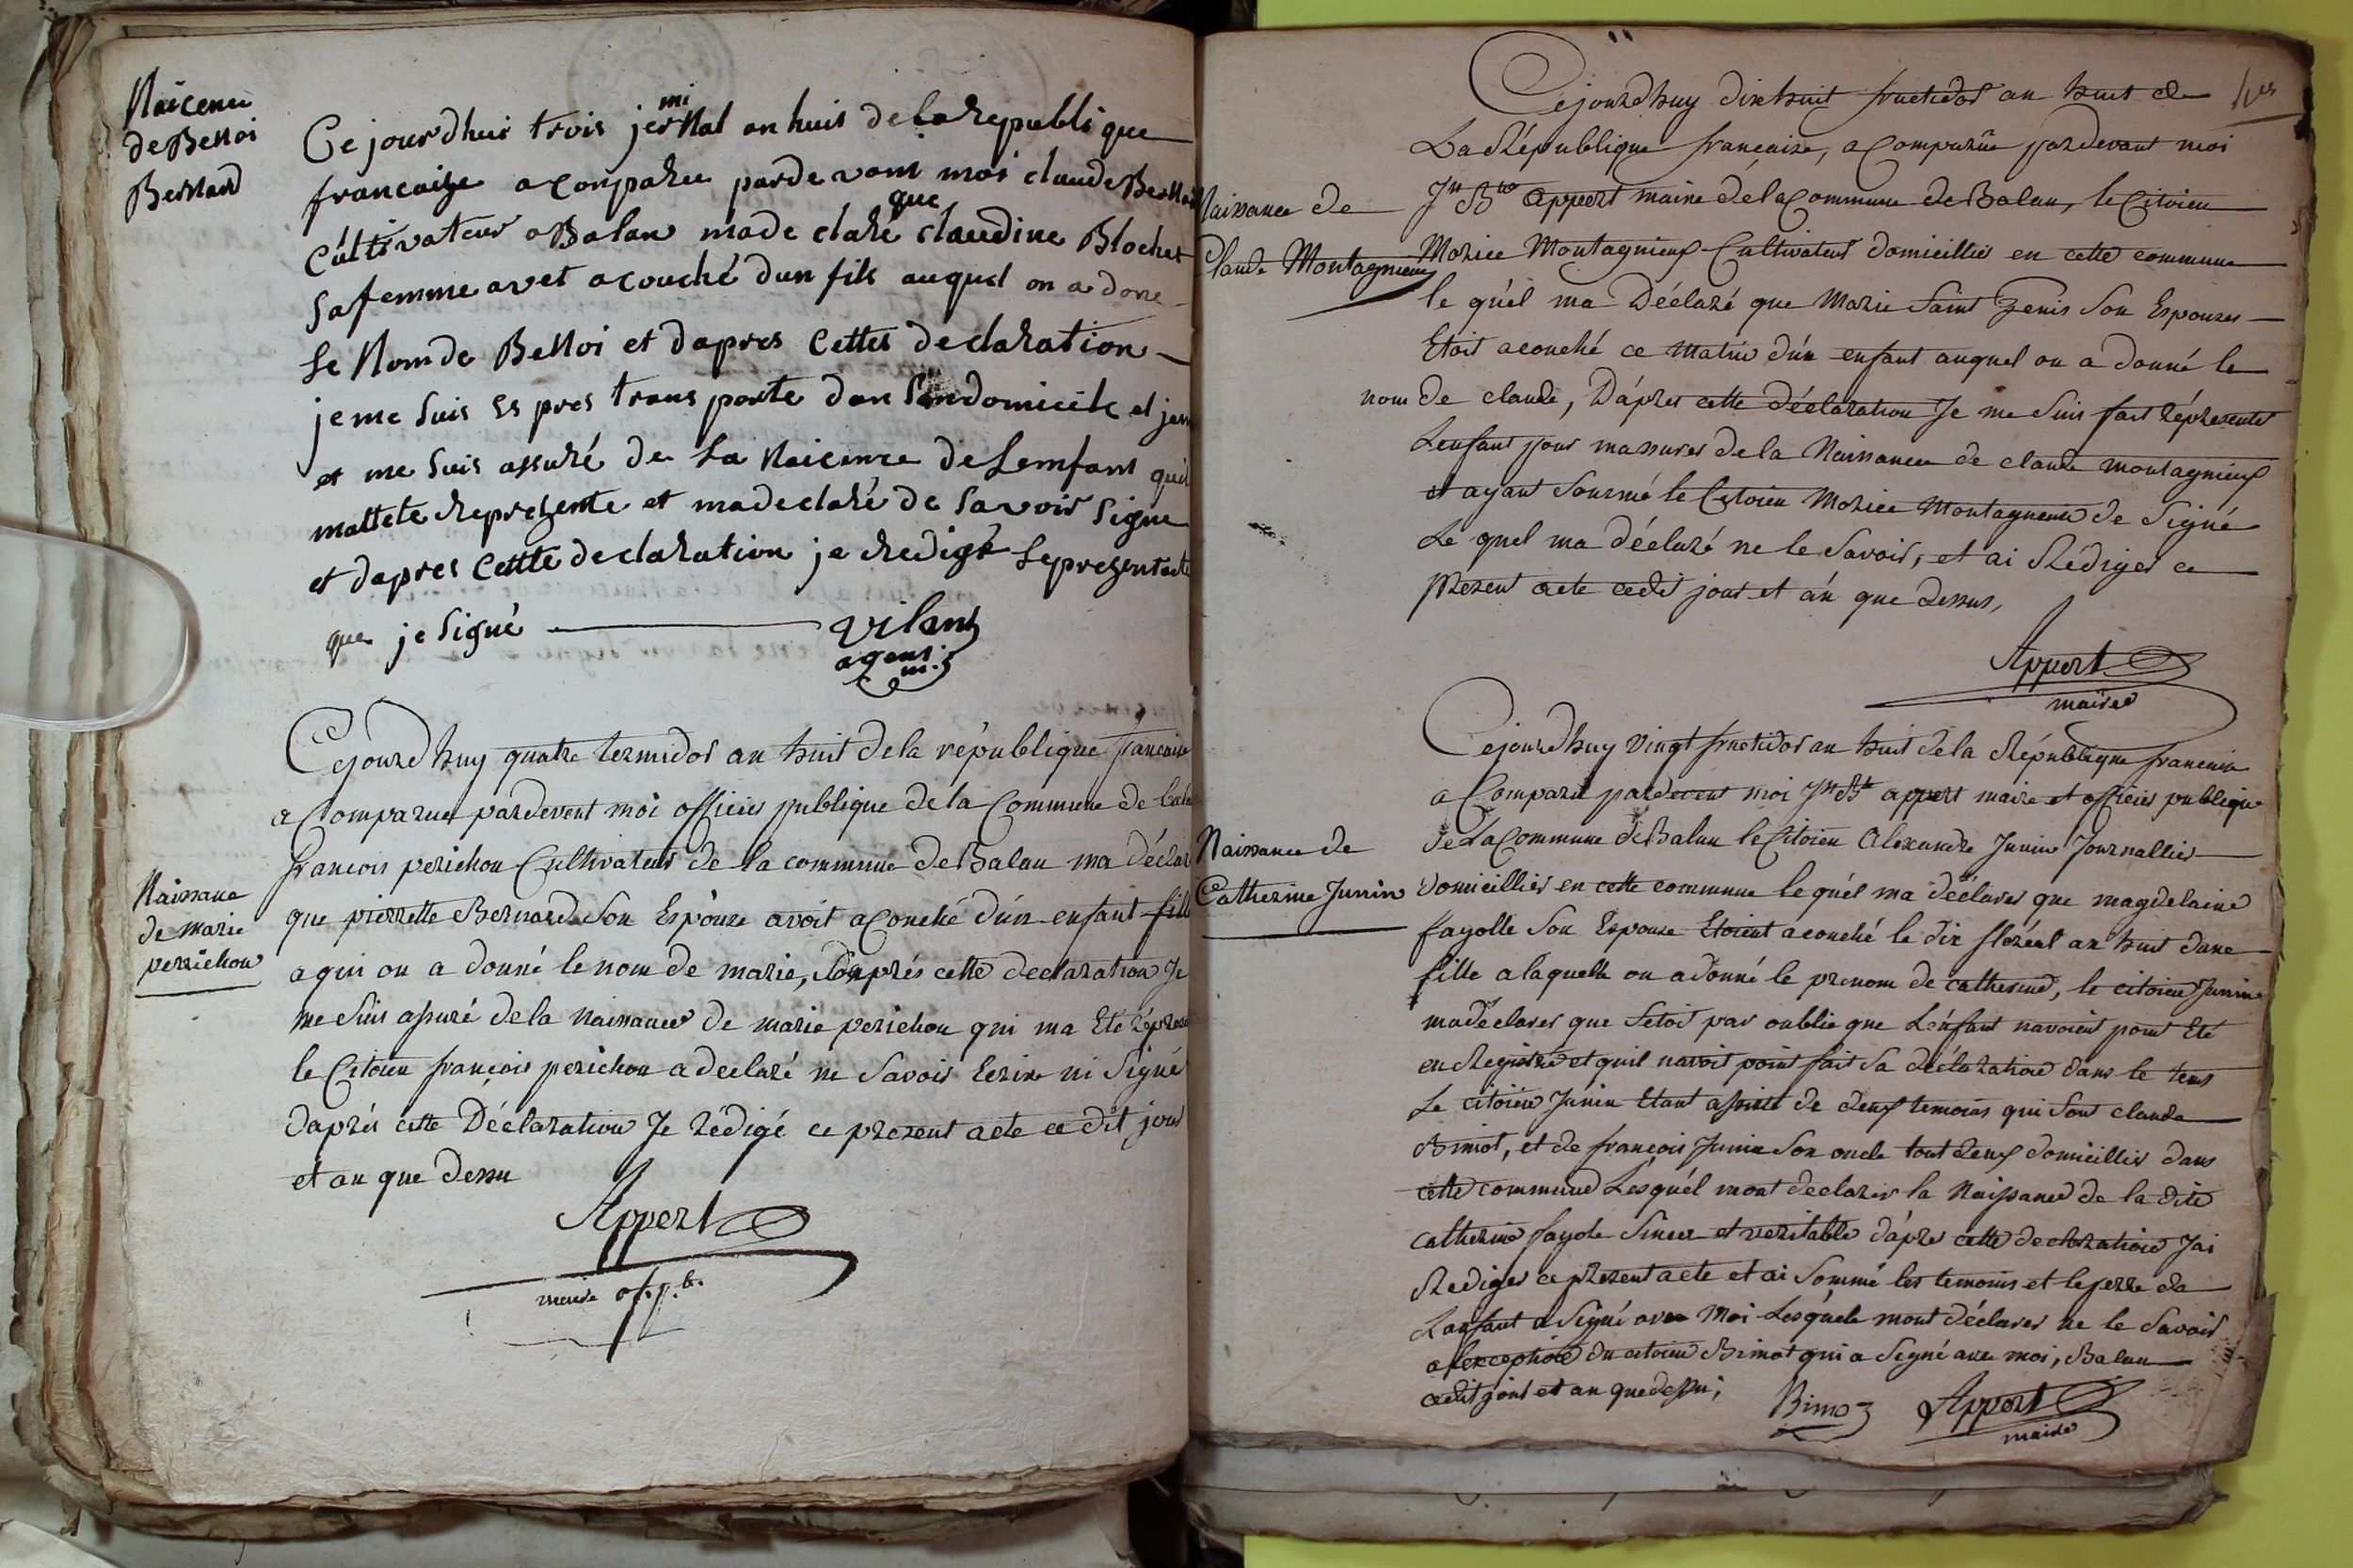 Naicence
de Benoi
Bernard
Ce jourdhui trois jerminal an huit de la republique
francaize a conparu parde vant moi claude Bernar
Cultivateur a Balan ma de claré que claudine Blochet
sa femme avet acouché dun fils auquel on a done
le Nom de Benoi et dapres cettes declaration
je me suis es pres trans porte dan son domicile et jen
et me suis assuré de la Naicence de Lemfant quil
mattete reprezente et ma declaré de savoir signe
et dapres cette declaration je redigé le prezent acte
que je signé vilant
agent
m.
Naissance
de marie
perrichon
Cejourdhuy quatre termidor an huit de la république francaise
a Comparuet pardevent moi officier publique de la Commune de bala
françois perichon Cultivateur de la commune de Balan ma déclar
que pierrette Bernarde Son Espouze avoit acouché dún enfant fille
a qui on a donné le nom de marie, Daprés cette declaration Je
me suis assuré de la naissance de marie perichon qui ma Eté réprese
le Citoien françois perichon a declaré ne Savoir Ecrire ni Signé
daprés cette Déclaration Je rédigé ce present acte cedit jour
et an que dessu
Appert
maire of. p.b.
Naissance de
Claude Montagnieux
Cejourdhuy dixhuit fructidor an huit de
La République francaise, a Comparüe pardevant moi
Jn Bte Appert maire de la Commune de Balan, le Citoien
Morice Montagnieux Cultivateur domicillié en cette commune
le quél ma Déclaré que Marie Saint Genis Son Espouzes
Etoit acouché ce Matin dún enfant auquel on a donné le
nom de claude, Dápres cette déclaration Je me Suis fait réprésenter
Lenfant pour massurer de la Naissance de claude montagnieux
et ayant Sommé le Citoien Morice Montagneux de Signé
Le quel ma déclaré ne le Savoir, et ai Rédiger ce
présent acte cedit jour et án que dessus,
Appert
maire
Naissance de
Catherine Junin
Cejourdhuy vingt fructidor an huit de la République francaise
a Comparu pardevent moi Jn Bte appert maire et officier publique
de La Commune de Balan le Citoien Alexandre Junin Journallier
domicillier en cette commune le quél ma déclarer que magdelaine
fayolle Son Espouse Etoient acouché le dix floréal an huit dune
fille a laquelle on a donné le prenom de catherine, le citoien Junin
ma declarer que Setoit par oublie que Lénfant navoient point Eté
en Registré et quil navoit point fait Sa déclaration dans le tems
Le citoien Junin Etant assisté de deux temoins qui Sont claude
Bimot, et de françois Junin Son oncle tout deux domicillier dans
cette commune Lesquél mont declarer la Naissance de la dite
catherine fayole Sincer et veritable dápres cette declaration Jai
Rediger ce present acte et ai Sommé les temoins et le perre de
Lanfant a Signé avec Moi Lesquéle mont déclarer ne le Savoir
a lexception du citoien Bimot qui a Signé avec moi, Balan
cedit jour et an que dessu;
Bimoz Appert
maire